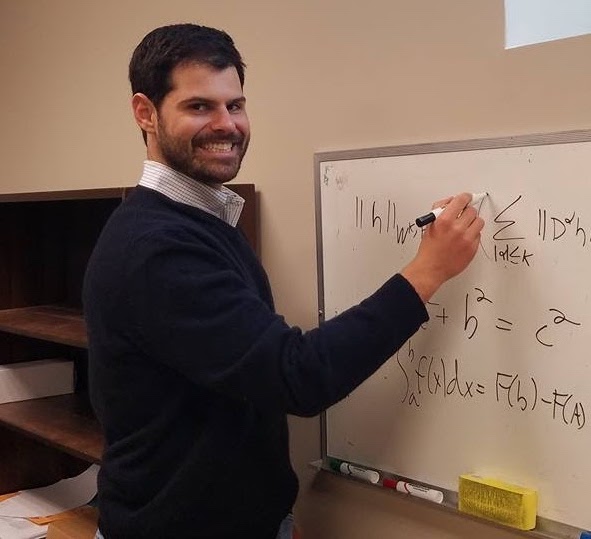 ||h||_W^k, ( Σ_|α|≤k ||D^α h
+ b² = c²
∫_a^b f(x)dx = F(b) - F(A)